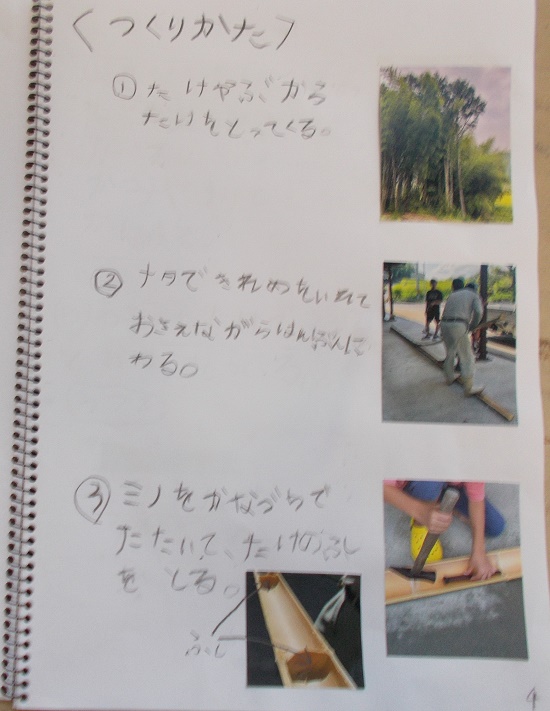 〈つくりかた〉
① たけやぶから
たけをとってくる。
② ナタできれめをいれて
おさえながらはんぶんに
わる。
③ ミノをかなづちで
たたいて、たけのふし
をとる。
ふし
4